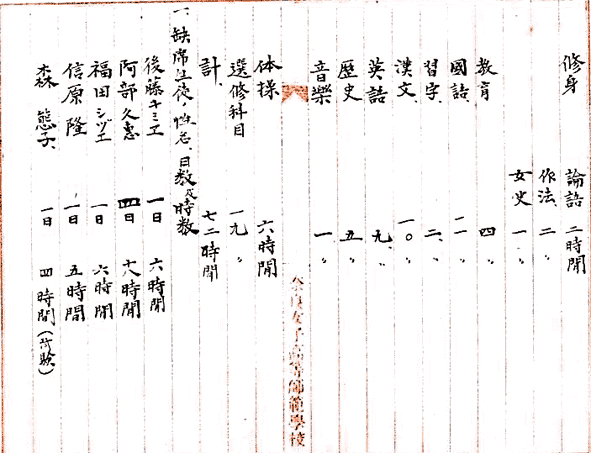 修身 論語 二時間
作法 二〃
女史 一〃
教育 四〃
國語 一一〃
習字 二〃
漢文 一〇〃
英語 九〃
歴史 五〃
音樂 一〃
奈良女子高等師範學校
体操 六時間
選修科目 一九〃
計 七二時間
一、缺席生徒ノ姓名、日数及時数
後藤キミエ 一日 六時間
阿部久恵 四日 十八時間
福田シヅエ 一日 六時間
信原隆 一日 五時間
森 態子 一日 四時間